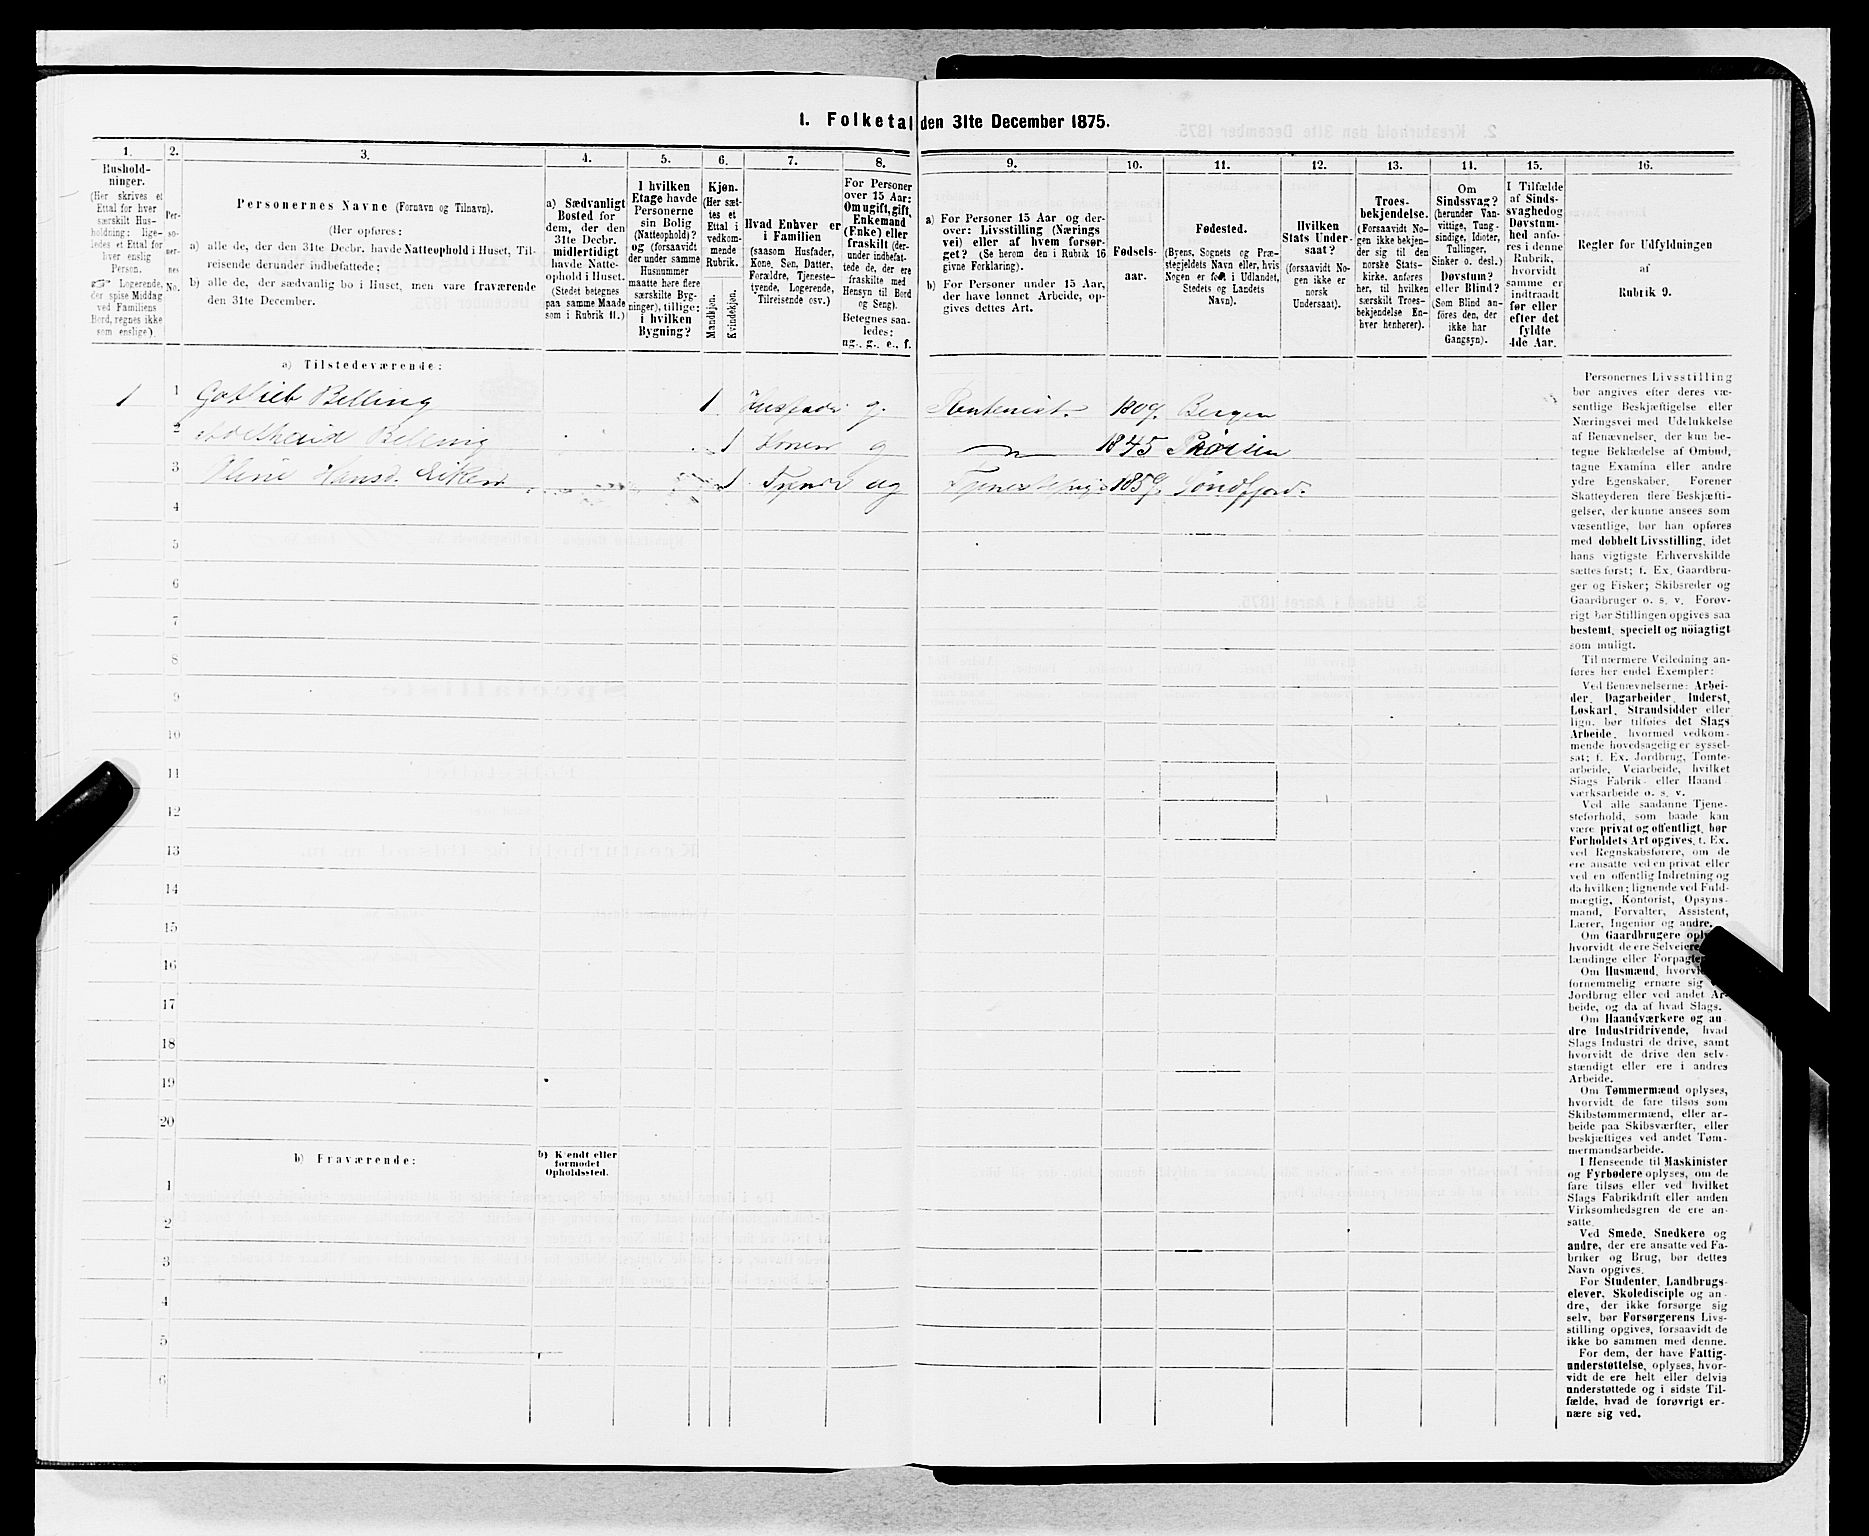 1. Folketal den 31te December 1875.
1. 2. 3. 4. 5. 6. 7. 8. 9. 10. 11. 12. 13. 14. 15. 16.
Hushold-
ninger.
(Her skrives et
Ettal for hver
særskilt Hus-
holdning; lige-
ledes et Ettal for
hver enslig
Person.
Logerende,
der spise Middag
ved Familiens
Bord, regnes ikke
som enslige).
Per-
so-
ner-
nes
No.
Personernes Navne (Fornavn og Tilnavn).
(Her opføres:
a) alle de, der den 31te Decbr. havde Natteophold i Huset, Til-
reisende derunder indbefattede;
b) alle de, der sædvanlig bo i Huset, men vare fraværende
den 31te December.
a) Sædvanligt
Bosted for
dem, der den
31te Decbr.
midlertidigt
havde Natte-
ophold i Huset.
(Stedet betegnes
paa samme Maade
som i Rubrik 11.)
I hvilken
Etage havde
Personerne
sin Bolig
(Natteophold)?
og (forsaavidt
der under samme
Husnummer
maatte høre flere
særskilte Byg-
ninger), tillige:
i hvilken
Bygning?
Kjøn.
(Her sæt-
tes et
Ettal i
vedkom-
mende
Rubrik.
Mandkjøn.
Kvindekjøn.
Hvad Enhver er
i Familien
(saasom Husfader,
Kone, Søn, Datter,
Forældre, Tjeneste-
tyende, Logerende,
Tilreisende osv.)
For Personer
over 15 Aar:
Om ugift, gift,
Enkemand
(Enke) eller
fraskilt (der-
under indbefat-
tede de, der ere
fraskilte med
Hensyn til Bord
og Seng).
Betegnes saa-
ledes:
ug., g., e., f.
a) For Personer 15 Aar og der-
over: Livsstilling (Nærings
vei) eller af hvem forsør-
get? (Se herom den i Rubrik 16
givne Forklaring).
b) For Personer under 15 Aar,
der have lønnet Arbeide, op-
gives dettes Art.
Fødsels-
aar.
Fødested.
(Byens, Sognets og Præ-
stegjeldets Navn eller, hvis
Nogen er født i Udlandet,
Stedets og Landets
Navn).
Hvilken
Stats Under-
saat?
(forsaavidt No-
gen ikke er
norsk
Undersaat).
Troes-
bekjendelse.
(Forsaavidt No-
gen ikke bekjen-
der sig til den
norske Stats-
kirke, anføres
her, til hvilken
særskilt Troes-
bekjendelse En-
hver henhører).
Om
Sindssvag?
(herunder Van-
vittige, Tung-
sindige, Idioter,
Tullinger,
Sinker o. desl.)
Døvstum?
eller Blind?
(Som Blind an-
føres den, der
ikke har
Gangsyn).
I Tilfælde
af Sinds-
svaghed og
Døvstum-
hed anfø-
res i denne
Rubrik,
hvorvidt
samme er
indtraadt
før eller
efter det
fyldte
4de Aar.
Regler for Udfyldningen
af
Rubrik 9.
a) Tilstedeværende:
1 1 Gotlieb Belling 1 Husfader g. Rentenist. 1809. Bergen
2 Adelheid Belling 1 Kone g 1845
3 Oline Hansd. Eiken 1 ug 1859. Søndfjord.
4
5
6
7
8
9
10
11
12
13
14
15
16
17
18
19
20
b) Fraværende:
b) Kjendt eller
formodet
Opholdssted.
1
2
3
4
5
6
Personernes Livsstilling
bør angives efter deres væ-
sentlige Beskjæftigelse eller
Næringsvei med Udelukkelse
af Benævnelser, der kun be-
tegne Beklædelse af Ombud,
tagne Examina eller andre
ydre Egenskaber. Forener
Skatteyderen flere Beskjæfti-
gelser, der kunne ansees som
væsentlige, bør han opføres
med dobbelt Livsstilling, idet
hans vigtigste Erhvervskilde
sættes først; f. Ex. Gaardbru-
ger og Fisker; Skibsreder og
Gaardbruger o. s. v. Forøv-
rigt bør Stillingen opgives saa
bestemt, specielt og nöiagtigt
som muligt.
Til nærmere Veiledning an-
føres her endel Exempler:
Ved Benævnelserne: Arbei-
der, Dagarbeider, Inderst,
Løskarl, Strandsidder eller
lign. bør tilføies det Slags
Arbeide, hvormed vedkom-
mende hovedsagelig er syssel-
sat; f. Ex. Jordbrug, Tomte-
arbeide, Veiarbeide, hvilket
Slags Fabrik- eller Haand
værksarbeide o. s. v.
Ved alle saadanne Tjene-
steforhold, som baade kan
være privat og offentligt, bør
Forholdets Art opgives, f. Ex.
ved Regnskabsførere, om de
ere ansatte ved en privat eller
ved en offentlig Indretning og
da hvilken; lignende ved Fuld-
mægtig, Kontorist, Opsyns-
mand, Forvalter, Assistent,
Lærer, Ingeniør og andre.
Om Gaardbrugere
hvorvidt de ere Selveiere
lændinge eller
Om Husmænd,
fornemmelig ernære sig
Jordbrug eller ved andet Ar-
beide, og da af hvad Slags.
Om Haandværkere og an
dre Industridrivende, hvad
Slags Industri de drive, samt
hvorvidt de drive den selv-
stændigt eller ere i andres
Arbeide.
Om Tømmermænd oplyses,
hvorvidt de fare tilsøs som
Skibstømmermænd, eller ar-
beide paa Skibsværfter, eller
beskjæftiges ved andet Tøm-
mermandsarbeide.
I Henseende til Maskinister
og Fyrbødere oplyses, om de
fare tilsøs eller ved hvilket
Slags Fabrikdrift eller anden
Virksomhedsgren de ere an-
satte.
Ved Smede, Snedkere og
andre, der ere ansatte ved Fa-
briker og Brug, bør dettes
Navn opgives.
For Studenter, Landbrugs-
elever, Skoledisciple og an-
dre, der ikke forsørge sig
selv, bør Forsørgerens Livs-
stilling opgives, forsaavidt de
ikke bo sammen med denne.
For dem, der have Fattig-
understøttelse, oplyses, hvor-
vidt de ere helt eller delvis
understøttede og i sidste Til-
fælde, hvad de forøvrigt er-
nære sig ved.